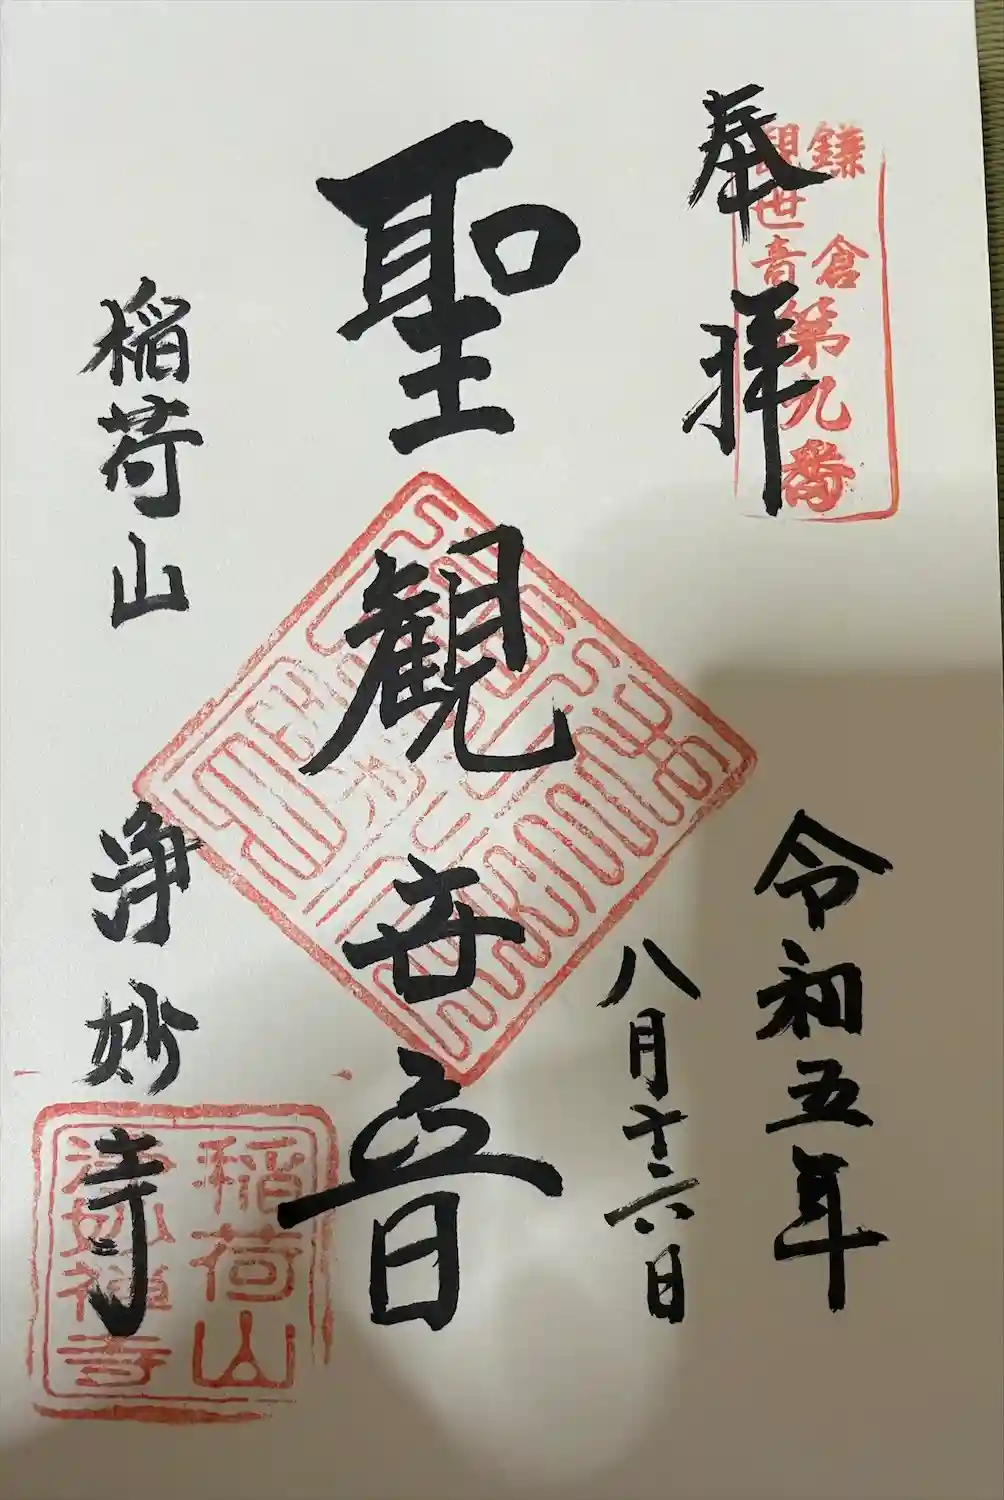 奉拝
鎌倉
観世音
第九番
令和五年
八月十六日
聖観世音
稲荷山
浄妙寺
稲荷山
浄妙禅寺